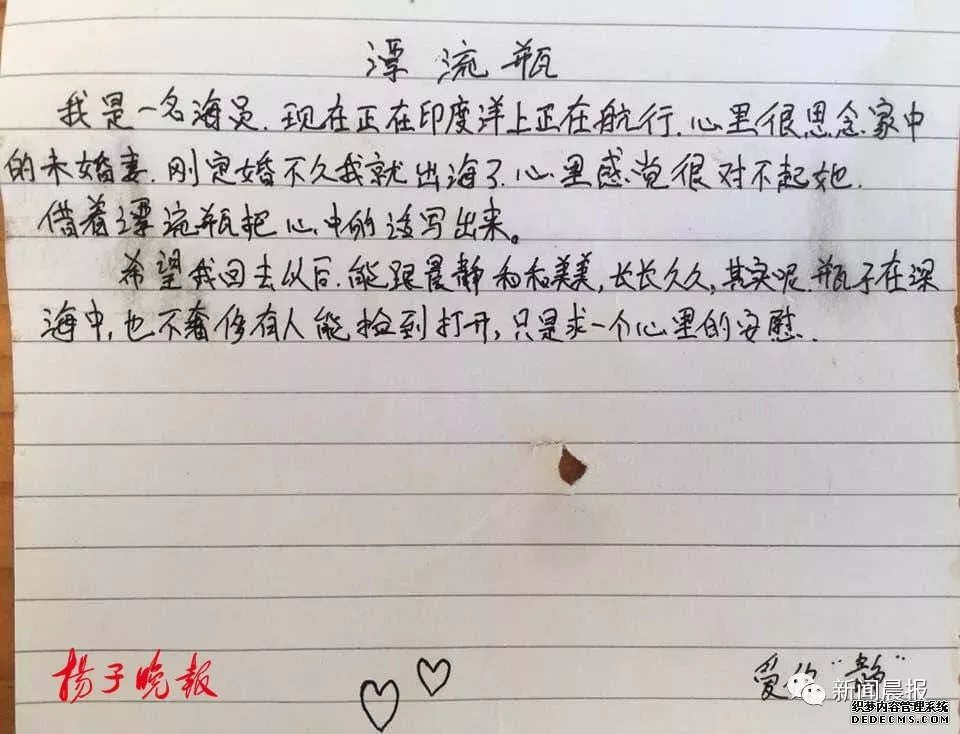 漂流瓶
我是一名海员.现在正在印度洋上正在航行.心里很思念家中
的未婚妻.刚定婚不久我就出海了.心里感觉很对不起她.
借着漂流瓶把心中的话写出来。
希望我回去以后.能跟晨静和和美美,长长久久,其实呢.瓶子在深
海中,也不奢侈有人能捡到打开,只是求一个心里的安慰.
爱你"静"
扬子晚报
新闻晨报
织梦内容管理系统
DEDECMS.COM